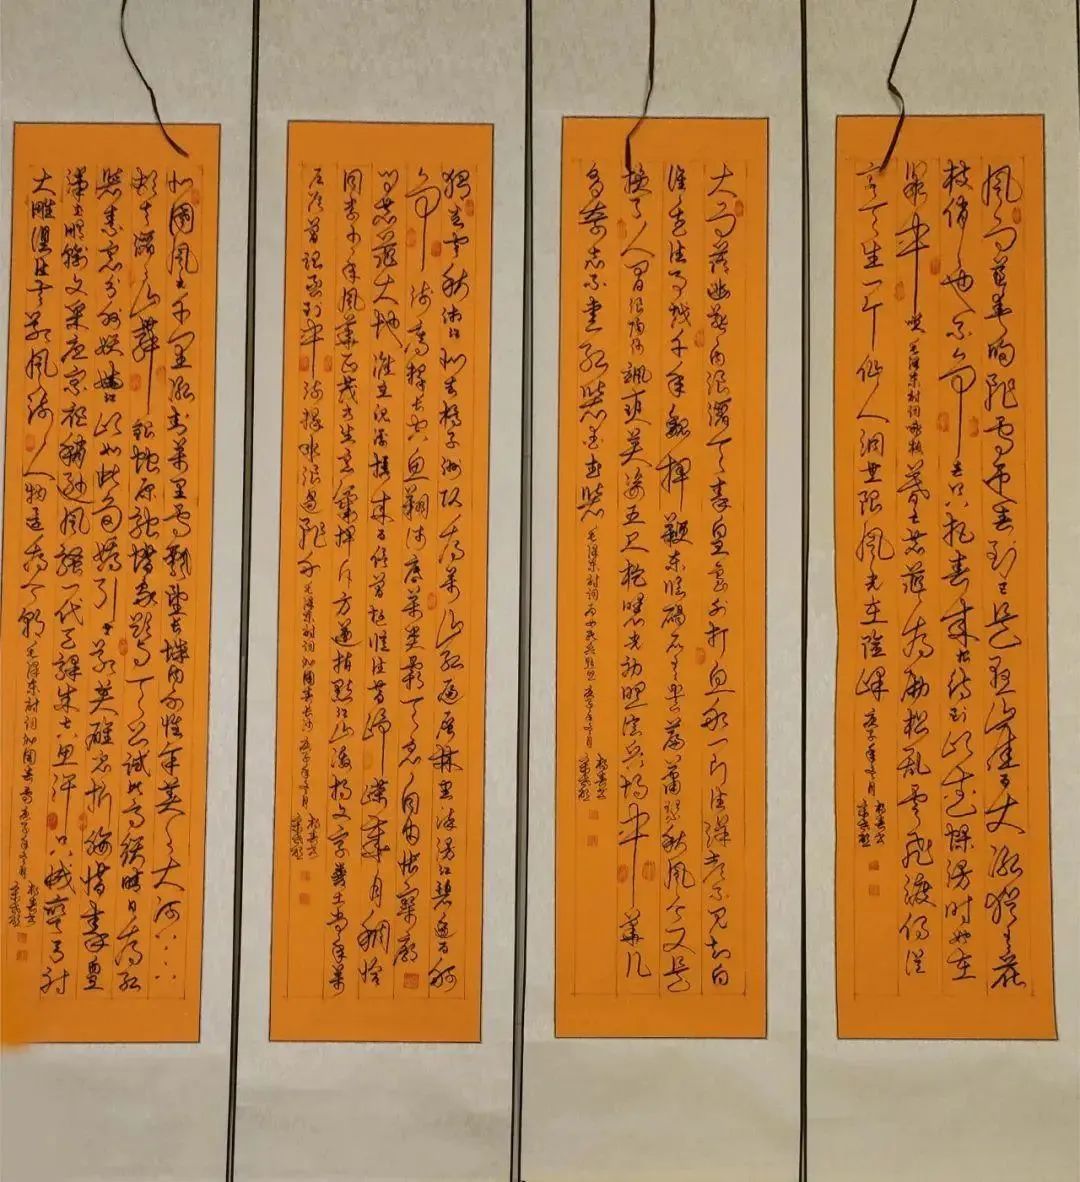 风雨送春归飞雪迎春到已是悬崖百丈冰犹有花
枝俏俏也不争春只把春来报待到山花烂漫时她在
丛中笑 咏 毛泽东诗词咏梅 暮色苍茫看劲松乱云飞渡仍从
容天生一个仙人洞无限风光在险峰 庚子年 月
大雨落幽燕白浪滔天秦皇岛外打鱼船一片汪洋都不见知向
谁边往事越千年魏武挥鞭东临碣石有遗篇萧瑟秋风今又是
换了人间浪淘沙飒爽英姿五尺枪曙光初照演兵场中华儿
女多奇志不爱红装爱武装 毛泽东诗词为女民兵题照 庚子年 月
独立寒秋湘江北去橘子洲头看万山红遍层林尽染漫江碧透百舸
争流鹰击长空鱼翔浅底万类霜天竞自由怅寥廓
问苍茫大地谁主沉浮携来百侣曾游忆往昔峥嵘岁月稠恰
同学少年风华正茂书生意气挥斥方遒指点江山激扬文字粪土当年万
户侯曾记否到中流击水浪遏飞舟 毛泽东诗词沁园春长沙 庚子年 月
北国风光千里冰封万里雪飘望长城内外惟余莽莽大河上下
顿失滔滔山舞银蛇原驰蜡象欲与天公试比高须晴日看红
装素裹分外妖娆江山如此多娇引无数英雄竞折腰惜秦皇
汉武略输文采唐宗宋祖稍逊风骚一代天骄成吉思汗只识弯弓射
大雕俱往矣数风流人物还看今朝 毛泽东诗词沁园春雪 庚子年 月